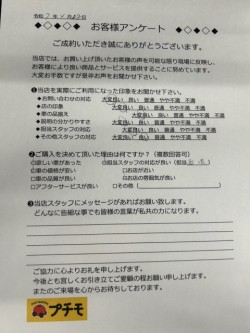 ◆◇◆◇ お客様アンケート ◆◇◆◇
ご成約いただき誠にありがとうございます。
当店では、お買い上げ頂いたお客様の声を可能な限り現場に反映し、
お客様により良い商品とサービスを提供することに努めています。
大変お手数ですが是非お声をお聞かせ下さい。
❶当店を実際にご利用になった印象をお聞かせ下さい
●お問い合わせの対応 大変良い 良い 普通 やや不満 不満
●店の出迎え 大変良い 良い 普通 やや不満 不満
●車の品揃え 大変良い 良い 普通 やや不満 不満
●説明の分かりやすさ 大変良い 良い 普通 やや不満 不満
●担当スタッフの対応 大変良い 良い 普通 やや不満 不満
●他スタッフの対応 大変良い 良い 普通 やや不満 不満
❷ご購入を決めて頂いた理由は何ですか？（複数回答可）
□欲しい車があった □担当スタッフの対応が良い（担当
□車の価格が安い □お店が近い
□車の品質が良い □お店の雰囲気が良い
□アフターサービスが良い □その他（ ）
❸当店スタッフにメッセージがあればお願い致します。
どんなに些細な事でも皆様の言葉が私共の力になります。
ご協力に心よりお礼を申し上げます。
今後とも宜しくお引き立てご愛顧の程お願い申し上げます。
またのご来場を心からお待ちしております。
プチモ